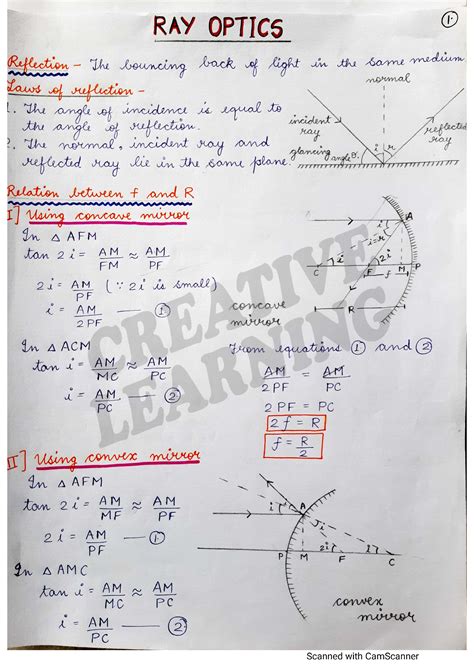 RAY OPTICS
1.
Reflection - The bouncing back of light in the same medium
Laws of reflection -
1. The angle of incidence is equal to
the angle of reflection.
2. The normal, incident ray and
reflected ray lie in the same plane.
normal
incident
ray
reflected
ray
glancing
angle θ
i r
Relation between f and R
I] Using concave mirror
In △ AFM
tan 2i = AM/FM ≈ AM/PF
2i = AM/PF (∵ 2i is small)
i = AM/2PF — ①
In △ ACM
tan i = AM/MC ≈ AM/PC
i = AM/PC — ②
A
i
i=r
C i F 2i M P
f
R
concave
mirror
From equations ① and ②
AM/2PF = AM/PC
2PF = PC
2f = R
f = R/2
CREATIVE
LEARNING
II] Using convex mirror
In △ AFM
tan 2i = AM/MF ≈ AM/PF
2i = AM/PF — ①
In △ AMC
tan i = AM/MC ≈ AM/PC
i = AM/PC — ②
A
i
i
2i i
P M F C
convex
mirror
Scanned with CamScanner